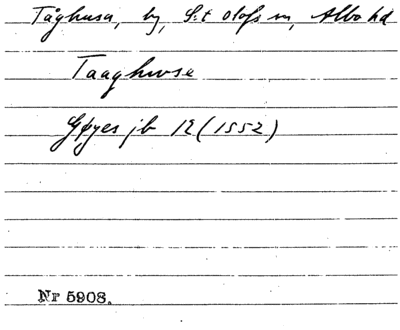 Tåghusa, by, S:t Olofs sn, Albo hd
Taaghwse
Gøyes jb 12 (1552)
Nr 5908.